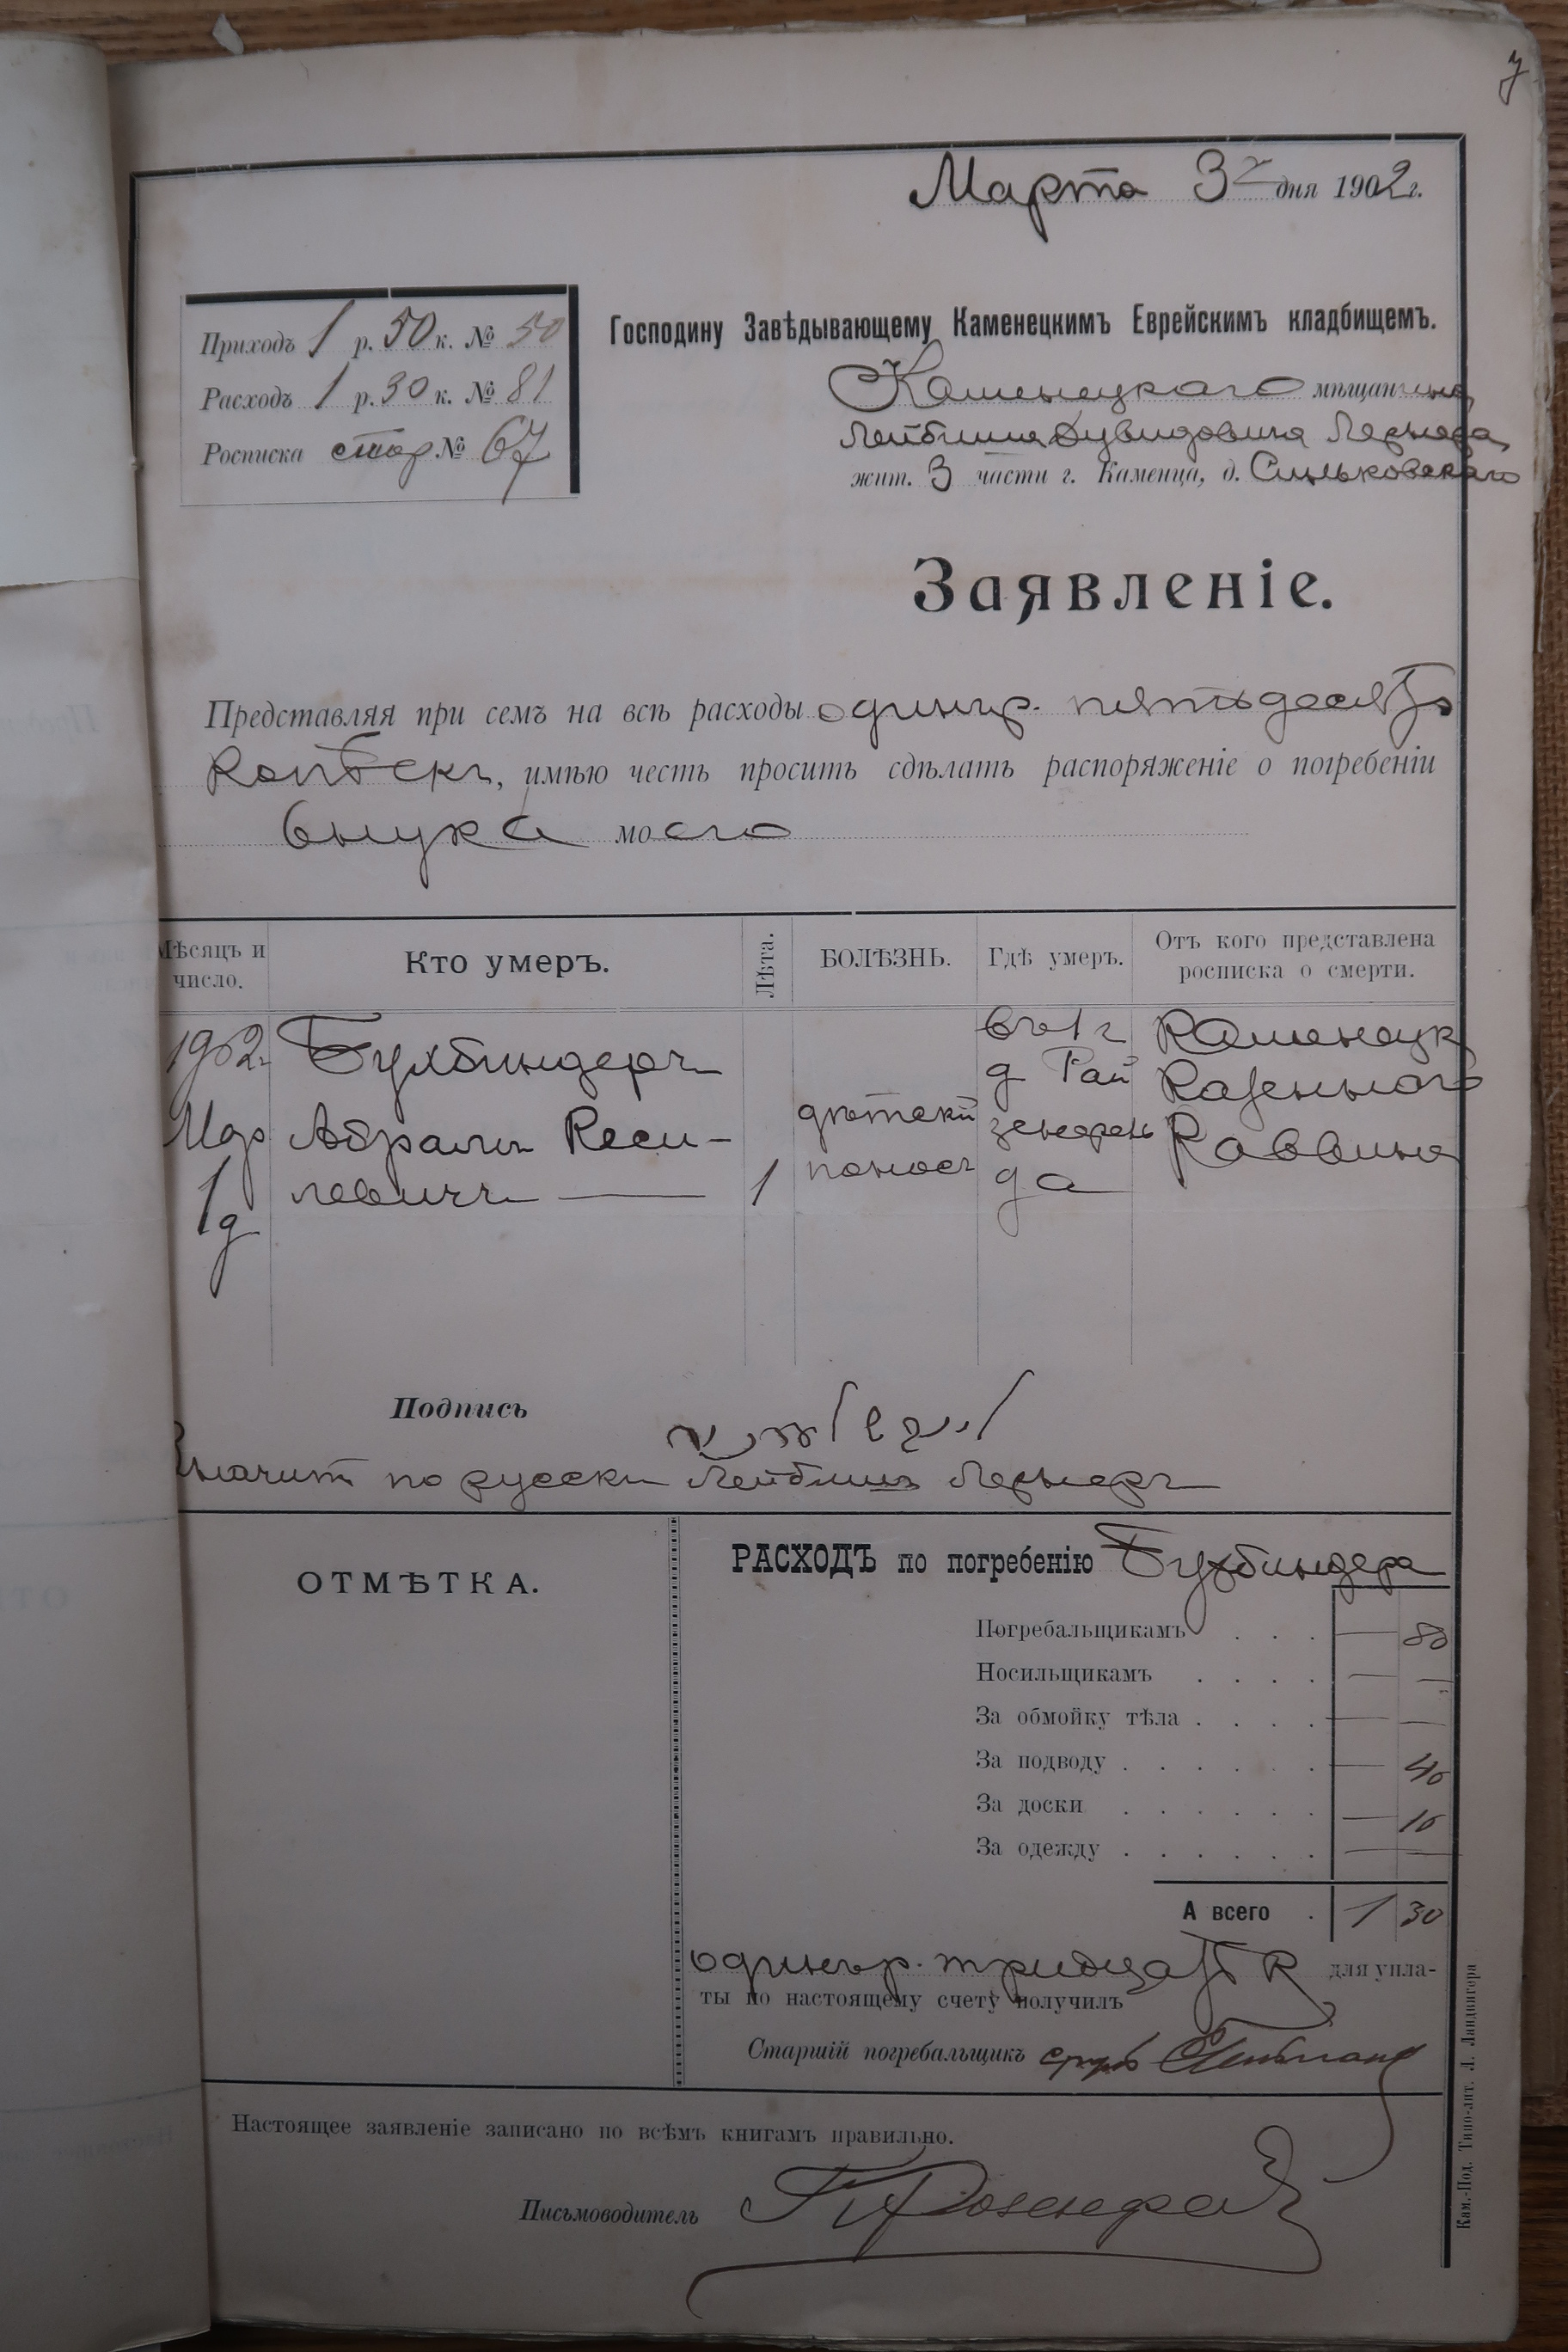 7
Марта 3го дня 1902 г.
Приходъ 1 р. 50 к. № 50
Расходъ 1 р. 30 к. № 81
Росписка стор № 67
Господину Завѣдывающему Каменецкимъ Еврейскимъ кладбищемъ.
Каменецкаго мѣщанина
Лейбиша Дувидовича Лернера
жит. 3 части г. Каменца, д. Синьковскаго
Заявленіе.
Представляя при семъ на всѣ расходы одинъ р. пятьдесятъ
копѣекъ, имѣю честь просить сдѣлать распоряженіе о погребеніи
внука моего
Мѣсяцъ и число.
Кто умеръ.
Лѣта.
БОЛѢЗНЬ.
Гдѣ умеръ.
Отъ кого представлена росписка о смерти.
1902 г
Мар
1 д
Бухбиндеръ
Абрамъ Беси-
левичъ
1
дѣтскій
поносъ
въ 1 г
д Рай
зенберъ
да
Каменецк
Казеннаго
Раввина
Подпись
Значитъ по русски Лейбишъ Лернеръ
ОТМѢТКА.
РАСХОДЪ по погребенію Бухбиндера
Погребальщикамъ . . . — 80
Носильщикамъ . . . . — —
За обмойку тѣла . . . . — —
За подводу . . . . . . — 40
За доски . . . . . . — 10
За одежду . . . . . . — —
А всего . 1 30
одинъ р. тридцать к для упла-
ты по настоящему счету получилъ
Старшій погребальщикъ
Настоящее заявленіе записано по всѣмъ книгамъ правильно.
Письмоводитель
Кам.-Под. Типо-лит. Л. Ландвигера